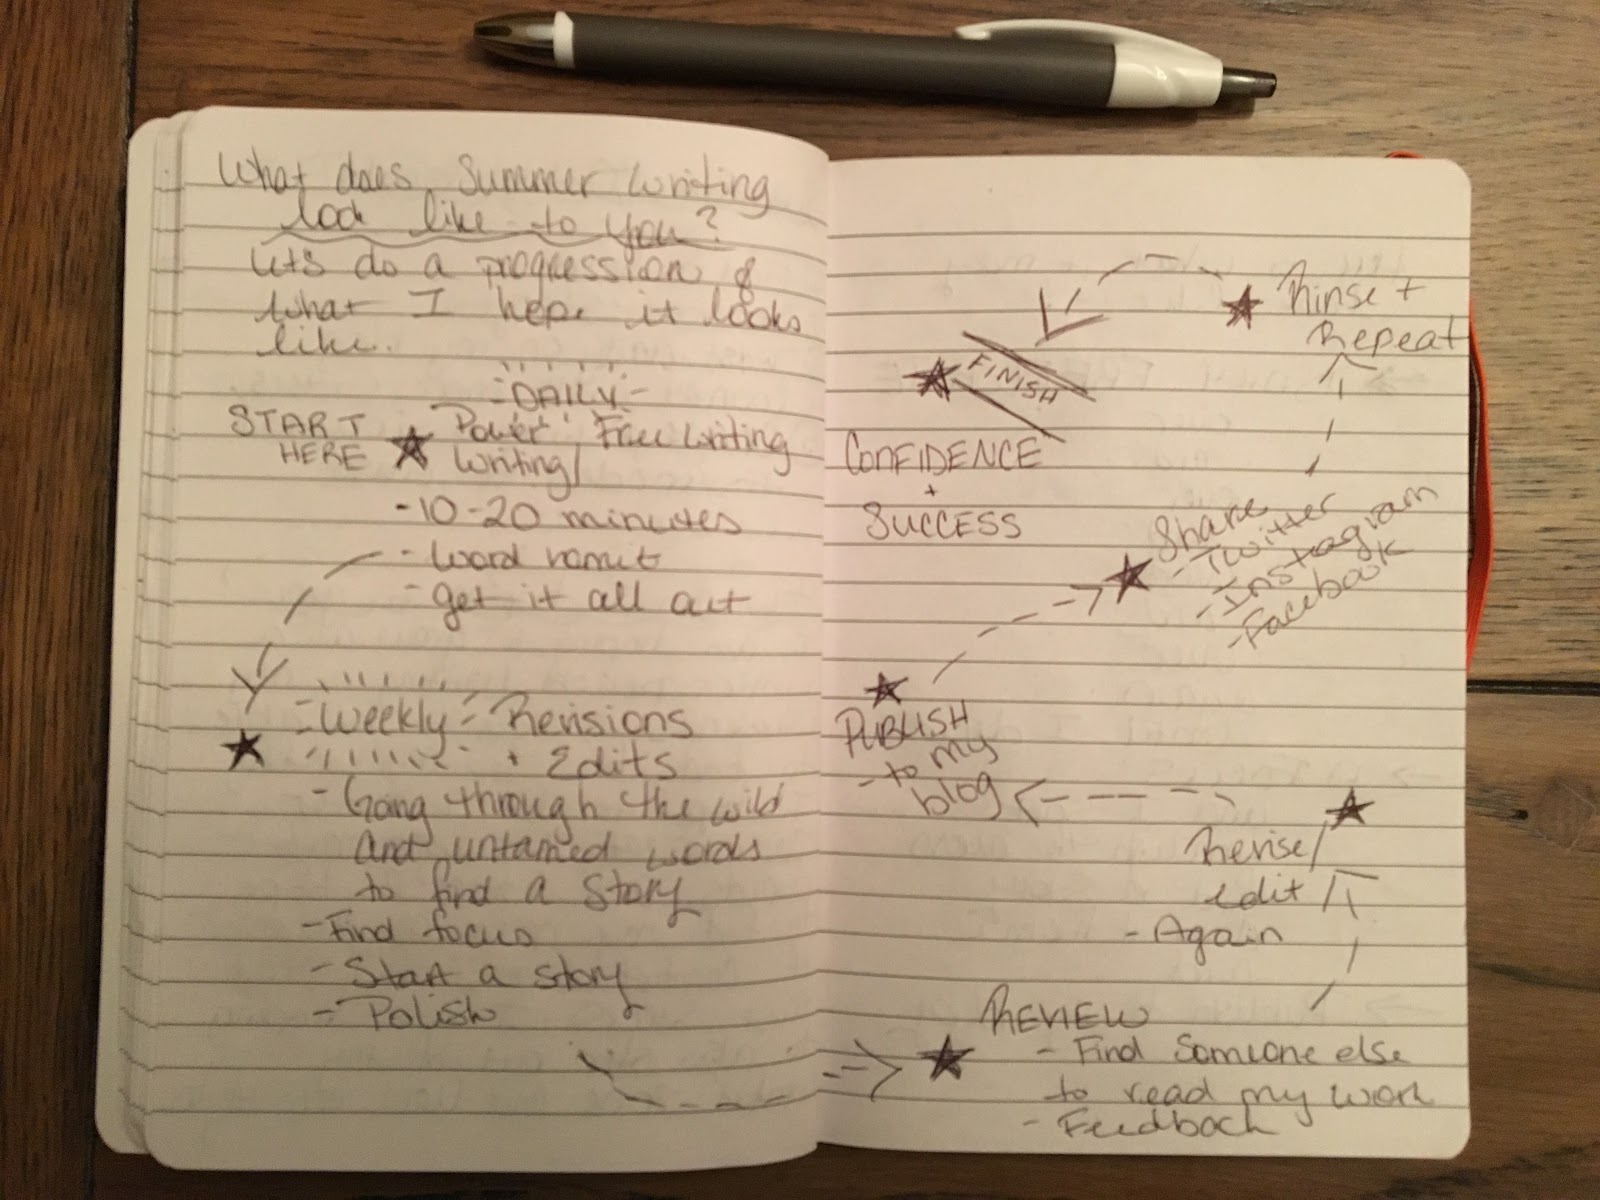 What does Summer Writing
look like to you?
Lets do a progression of
what I hope it looks
like.
DAILY
START HERE
Power Writing/ Free Writing
- 10-20 minutes
- Word vomit
- get it all out
Weekly Revisions
+ Edits
- Going through the wild
and untamed words
to find a story
- Find focus
- Start a story
- Polish
REVIEW
- Find Someone else
to read my work
- Feedback
Revise/
edit
- Again
PUBLISH
- to my
blog
Share
- Twitter
- Instagram
- Facebook
Rinse +
Repeat
FINISH
CONFIDENCE
+
SUCCESS